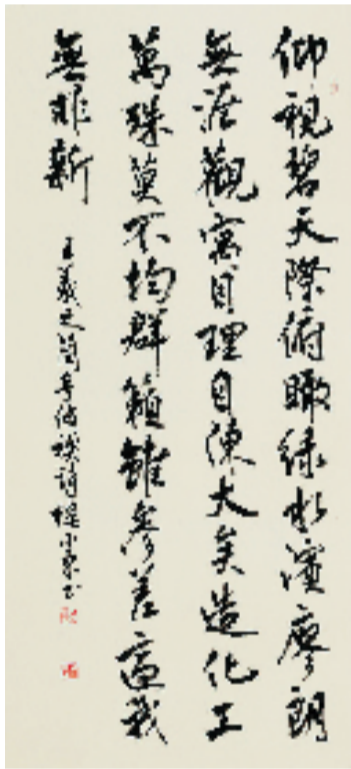 仰視碧天際俯瞰綠水濱寥朗
無涯觀寓目理自陳大矣造化工
萬殊莫不均群籟雖參差適我
無非新
王羲之蘭亭修禊詩